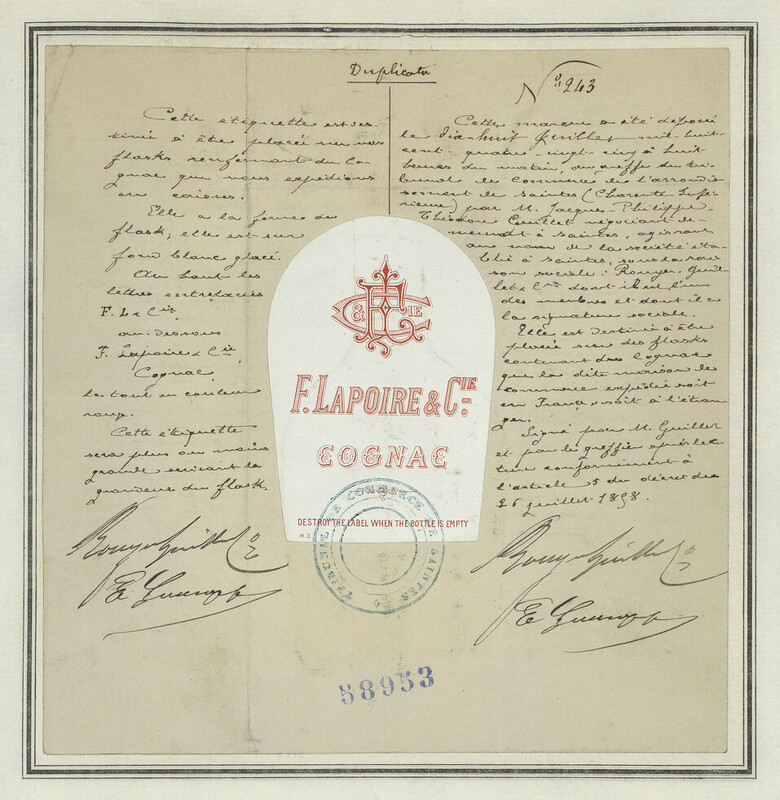 Duplicata
No 243
Cette étiquette est des-
tinée à être placée sur nos
flasks renfermant du Co-
gnac que nous expédions
en caisses.
Elle a la forme du
flask; elle est sur
fond blanc glacé.
Au haut les
lettres entrelacées
F. L & Cie
au-dessous
F. Lapoire & Cie
Cognac
le tout en couleur
rouge.
Cette étiquette
sera plus ou moins
grande suivant la
grandeur du flask
Rouyer Guillet & Co
Cette marque a été déposée
le dix-huit juillet mil-huit-
cent-quatre-vingt-cinq à huit
heures du matin, au greffe du tri-
bunal de commerce de l'arrondis-
sement de Saintes (Charente-Infé-
rieure) par M. Jacques-Philippe-
Théodore Guillet négociant de-
meurant à Saintes, agissant
au nom de la société éta-
blie à Saintes, sous la rai-
son sociale: Rouyer-Guil-
let & Cie dont il est l'un
des membres et dont il a
la signature sociale.
Elle est destinée à être
placée sur des flasks
contenant du Cognac
que la dite maison de
commerce expédie soit
en France, soit à l'étran-
ger.
Signé par M. Guillet
et par le greffier après lec-
ture conformément à
l'article 5 du décret du
26 juillet 1858.
Rouyer Guillet & Co
& CIE
F. LAPOIRE & CIE
COGNAC
DESTROY THE LABEL WHEN THE BOTTLE IS EMPTY
TRIBUNAL DE COMMERCE DE SAINTES
58953